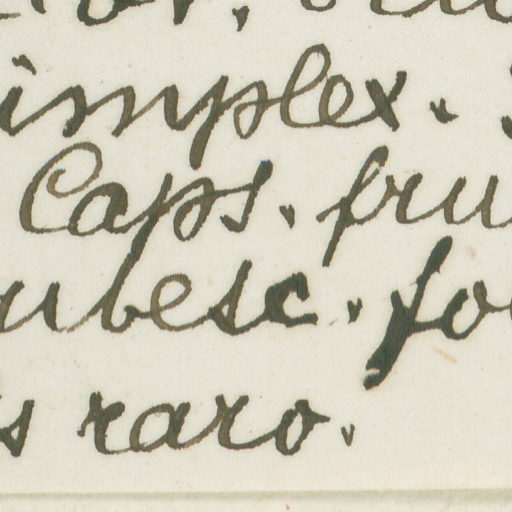 implex.
Caps. fru
ubesc. fo
s raro.